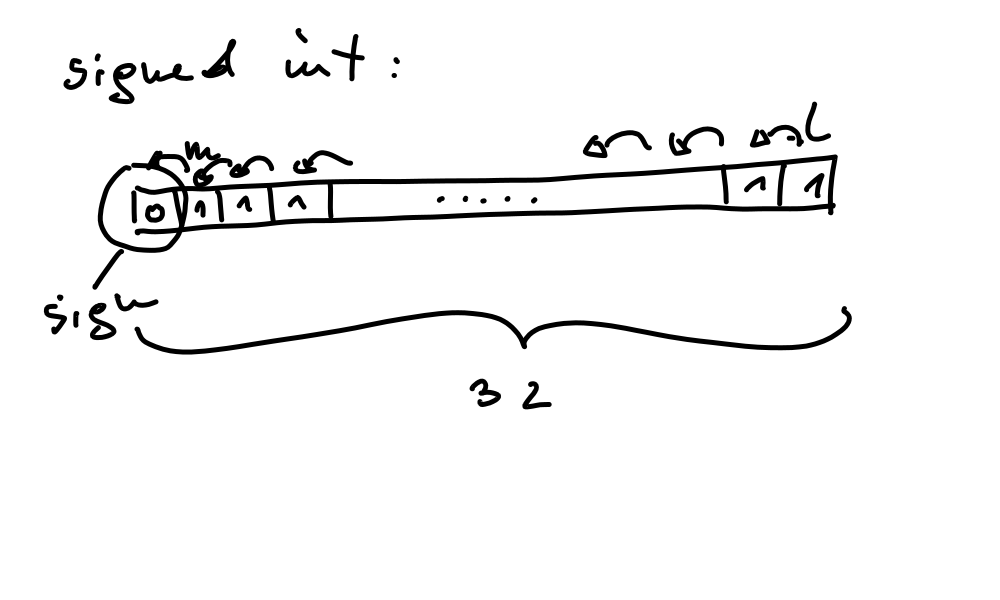 signed int:
m L
0 1 1 1 ..... 1 1
sign
32